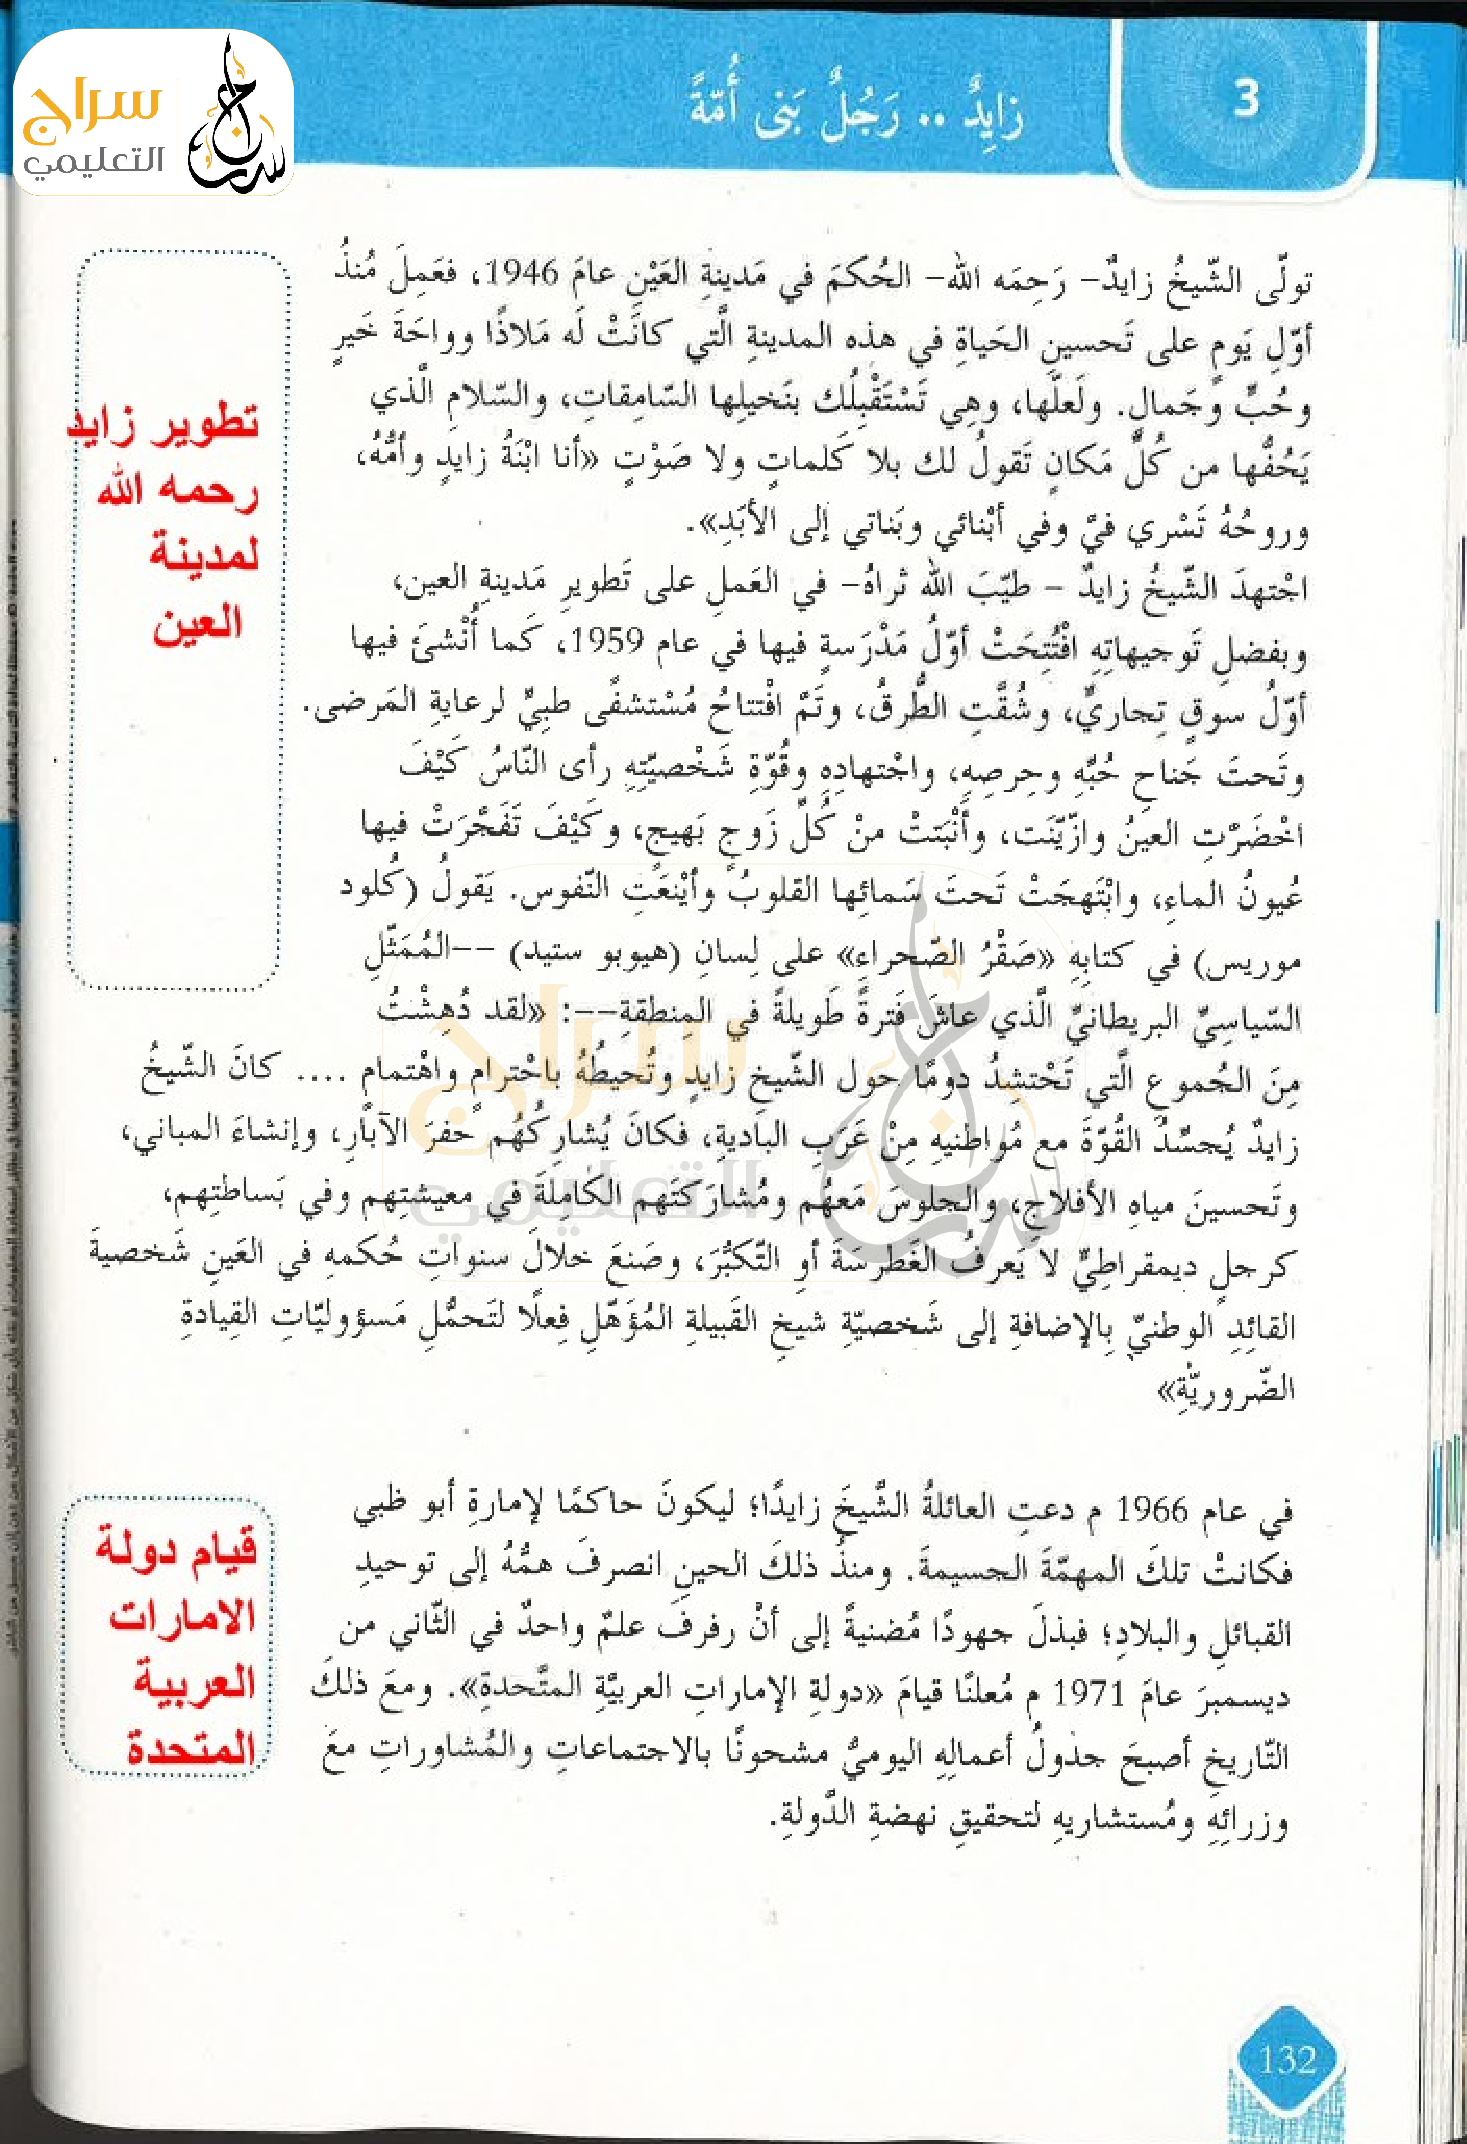 سراج
التعليمي
3
زايِدٌ .. رَجُلٌ بَنى أُمّةً
تولّى الشّيخُ زايدٌ- رَحِمَه الله- الحُكمَ في مَدينةِ العَيْنِ عامَ 1946، فعَمِلَ مُنذُ
أوّلِ يَومٍ على تَحسينِ الحَياةِ في هذه المدينةِ الَّتي كانَتْ لَه مَلاذًا وواحَةَ خَيرٍ
وحُبٍّ وجَمالٍ. ولَعلَّها، وهِي تَسْتَقْبِلُك بنَخيلِها السّامِقاتِ، والسّلامِ الَّذي
يَحُفُّها من كُلِّ مَكانٍ تَقولُ لك بلا كَلماتٍ ولا صَوْتٍ «أنا ابْنَةُ زايدٍ وأمُّهُ،
وروحُهُ تَسْري فيَّ وفي أبْنائي وبَناتي إلى الأبَدِ».
اجْتهدَ الشّيخُ زايدٌ - طيّبَ الله ثراهُ- في العَملِ على تَطويرِ مَدينةِ العين،
وبفضلِ تَوجيهاتِهِ افْتُتِحَتْ أوّلُ مَدْرَسةٍ فيها في عام 1959، كَما أُنْشئَ فيها
أوّلُ سوقٍ تِجاريٍّ، وشُقَّتِ الطُّرقُ، وتَمَّ افْتتاحُ مُسْتشفًى طبيٍّ لرعايةِ المَرضى.
وتَحتَ جَناحِ حُبِّهِ وحِرصِهِ، واجْتهادِهِ وقُوّةِ شَخْصيّتِهِ رأى النّاسُ كَيْفَ
اخْضَرّتِ العينُ وازّيّنَت، وأَنْبَتتْ منْ كُلِّ زَوجٍ بَهيج، وكَيْفَ تَفَجّرَتْ فيها
عُيونُ الماءِ، وابْتَهجَتْ تَحتَ سَمائِها القلوبُ وأيْنعَتِ النّفوس. يَقولُ (كُلود
موريس) في كتابِهِ «صَقْرُ الصّحراءِ» على لِسانِ (هيوبو ستيد) --المُمَثّلِ
السّياسيِّ البريطانيِّ الَّذي عاشَ فَترةً طَويلةً في المِنطقةِ--: «لقد دُهِشْتُ
مِنَ الجُموعِ الَّتي تَحْتشِدُ دومًا حول الشّيخِ زايدٍ وتُحيطُهُ باحْترامٍ واهْتمامٍ .... كانَ الشّيخُ
زايدٌ يُجسِّدُ القُوّةَ مع مُواطنيهِ مِنْ عَرَبِ الباديةِ، فكانَ يُشارِكُهُم حَفرَ الآبارِ، وإنشاءَ المباني،
وتَحسينَ مياهِ الأفلاجِ، والجلوسَ مَعهُم ومُشارَكتَهم الكامِلَةَ في معيشتِهم وفي بَساطتِهم،
كرجلٍ ديمقراطِيٍّ لا يَعرفُ الغَطرسَةَ أو التّكبُّرَ، وصَنعَ خلالَ سنواتِ حُكمهِ في العَينِ شَخصيةَ
القائِدِ الوطنيِّ بِالإضافةِ إلى شَخصيّةِ شيخِ القَبيلةِ المُؤَهّلِ فِعلًا لتَحمُّلِ مَسؤوليّاتِ القِيادةِ
الضّروريّةِ»
في عام 1966 م دعتِ العائلةُ الشّيخَ زايدًا؛ ليكونَ حاكمًا لإمارةِ أبو ظبي
فكانتْ تلكَ المهمّةَ الجسيمةَ. ومنذُ ذلكَ الحينِ انصرفَ همُّهُ إلى توحيدِ
القبائلِ والبلادِ؛ فبذلَ جهودًا مُضنيةً إلى أنْ رفرفَ علمٌ واحدٌ في الثّاني من
ديسمبرَ عامَ 1971 م مُعلنًا قيامَ «دولةِ الإماراتِ العربيَّةِ المتَّحدةِ». ومعَ ذلكَ
التّاريخِ أصبحَ جدولُ أعمالِهِ اليوميُّ مشحونًا بالاجتماعاتِ والمُشاوراتِ معَ
وزرائِهِ ومُستشاريهِ لتحقيقِ نهضةِ الدَّولةِ.
تطوير زايد
رحمه الله
لمدينة
العين
قيام دولة
الامارات
العربية
المتحدة
132